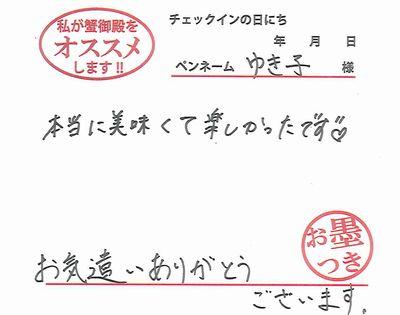 私が蟹御殿を
オススメ
します!!
チェックインの日にち
年 月 日
ペンネーム ゆき子 様
本当に美味くて楽しかったです♡
お墨
つき
お気遣いありがとう
ございます。